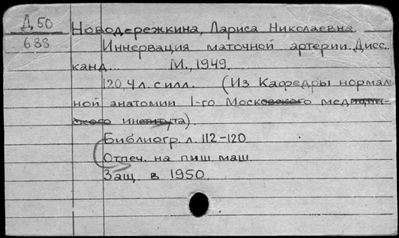 Д 50
688
Новодережкина, Лариса Николаевна
Иннервация маточной артерии. Дисс.
канд... М., 1949.
120,4 л. с илл. (Из Кафедры нормаль-
ной анатомии 1-го Московского медицин-
ского института).
Библиогр. л. 112-120
Отпеч. на пиш. маш.
Защ. в 1950.